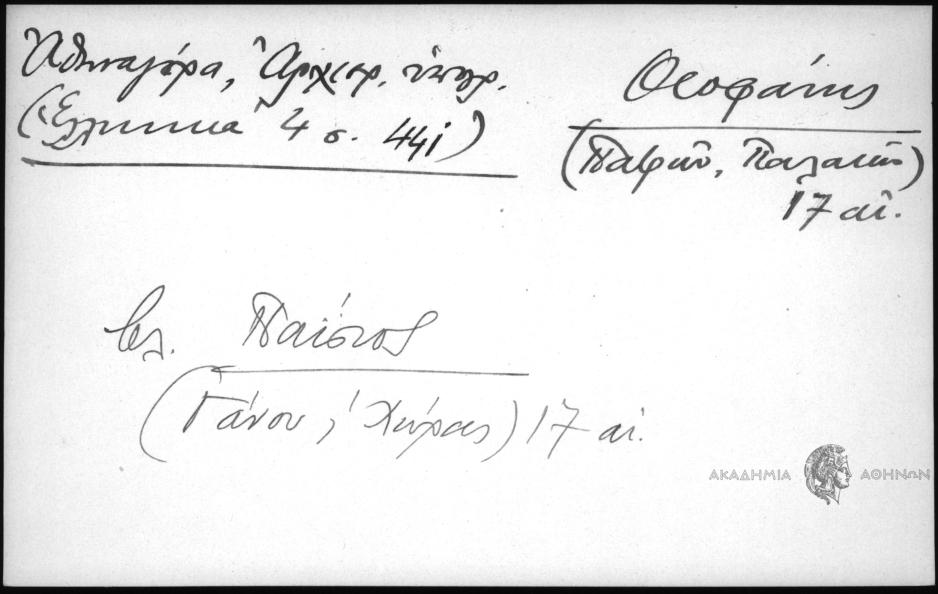 Ἀθηναγόρα, Ἀρχιερ. ὑπομ.
(Ἑλληνικά 4 σ. 441)
Θεοφάνης
(Παλαιῶν Πατρῶν)
17 αἰ.
βλ. Παΐσιος
(Γάνου, ἡ Χώρας) 17 αἰ.
ΑΚΑΔΗΜΙΑ ΑΘΗΝΩΝ